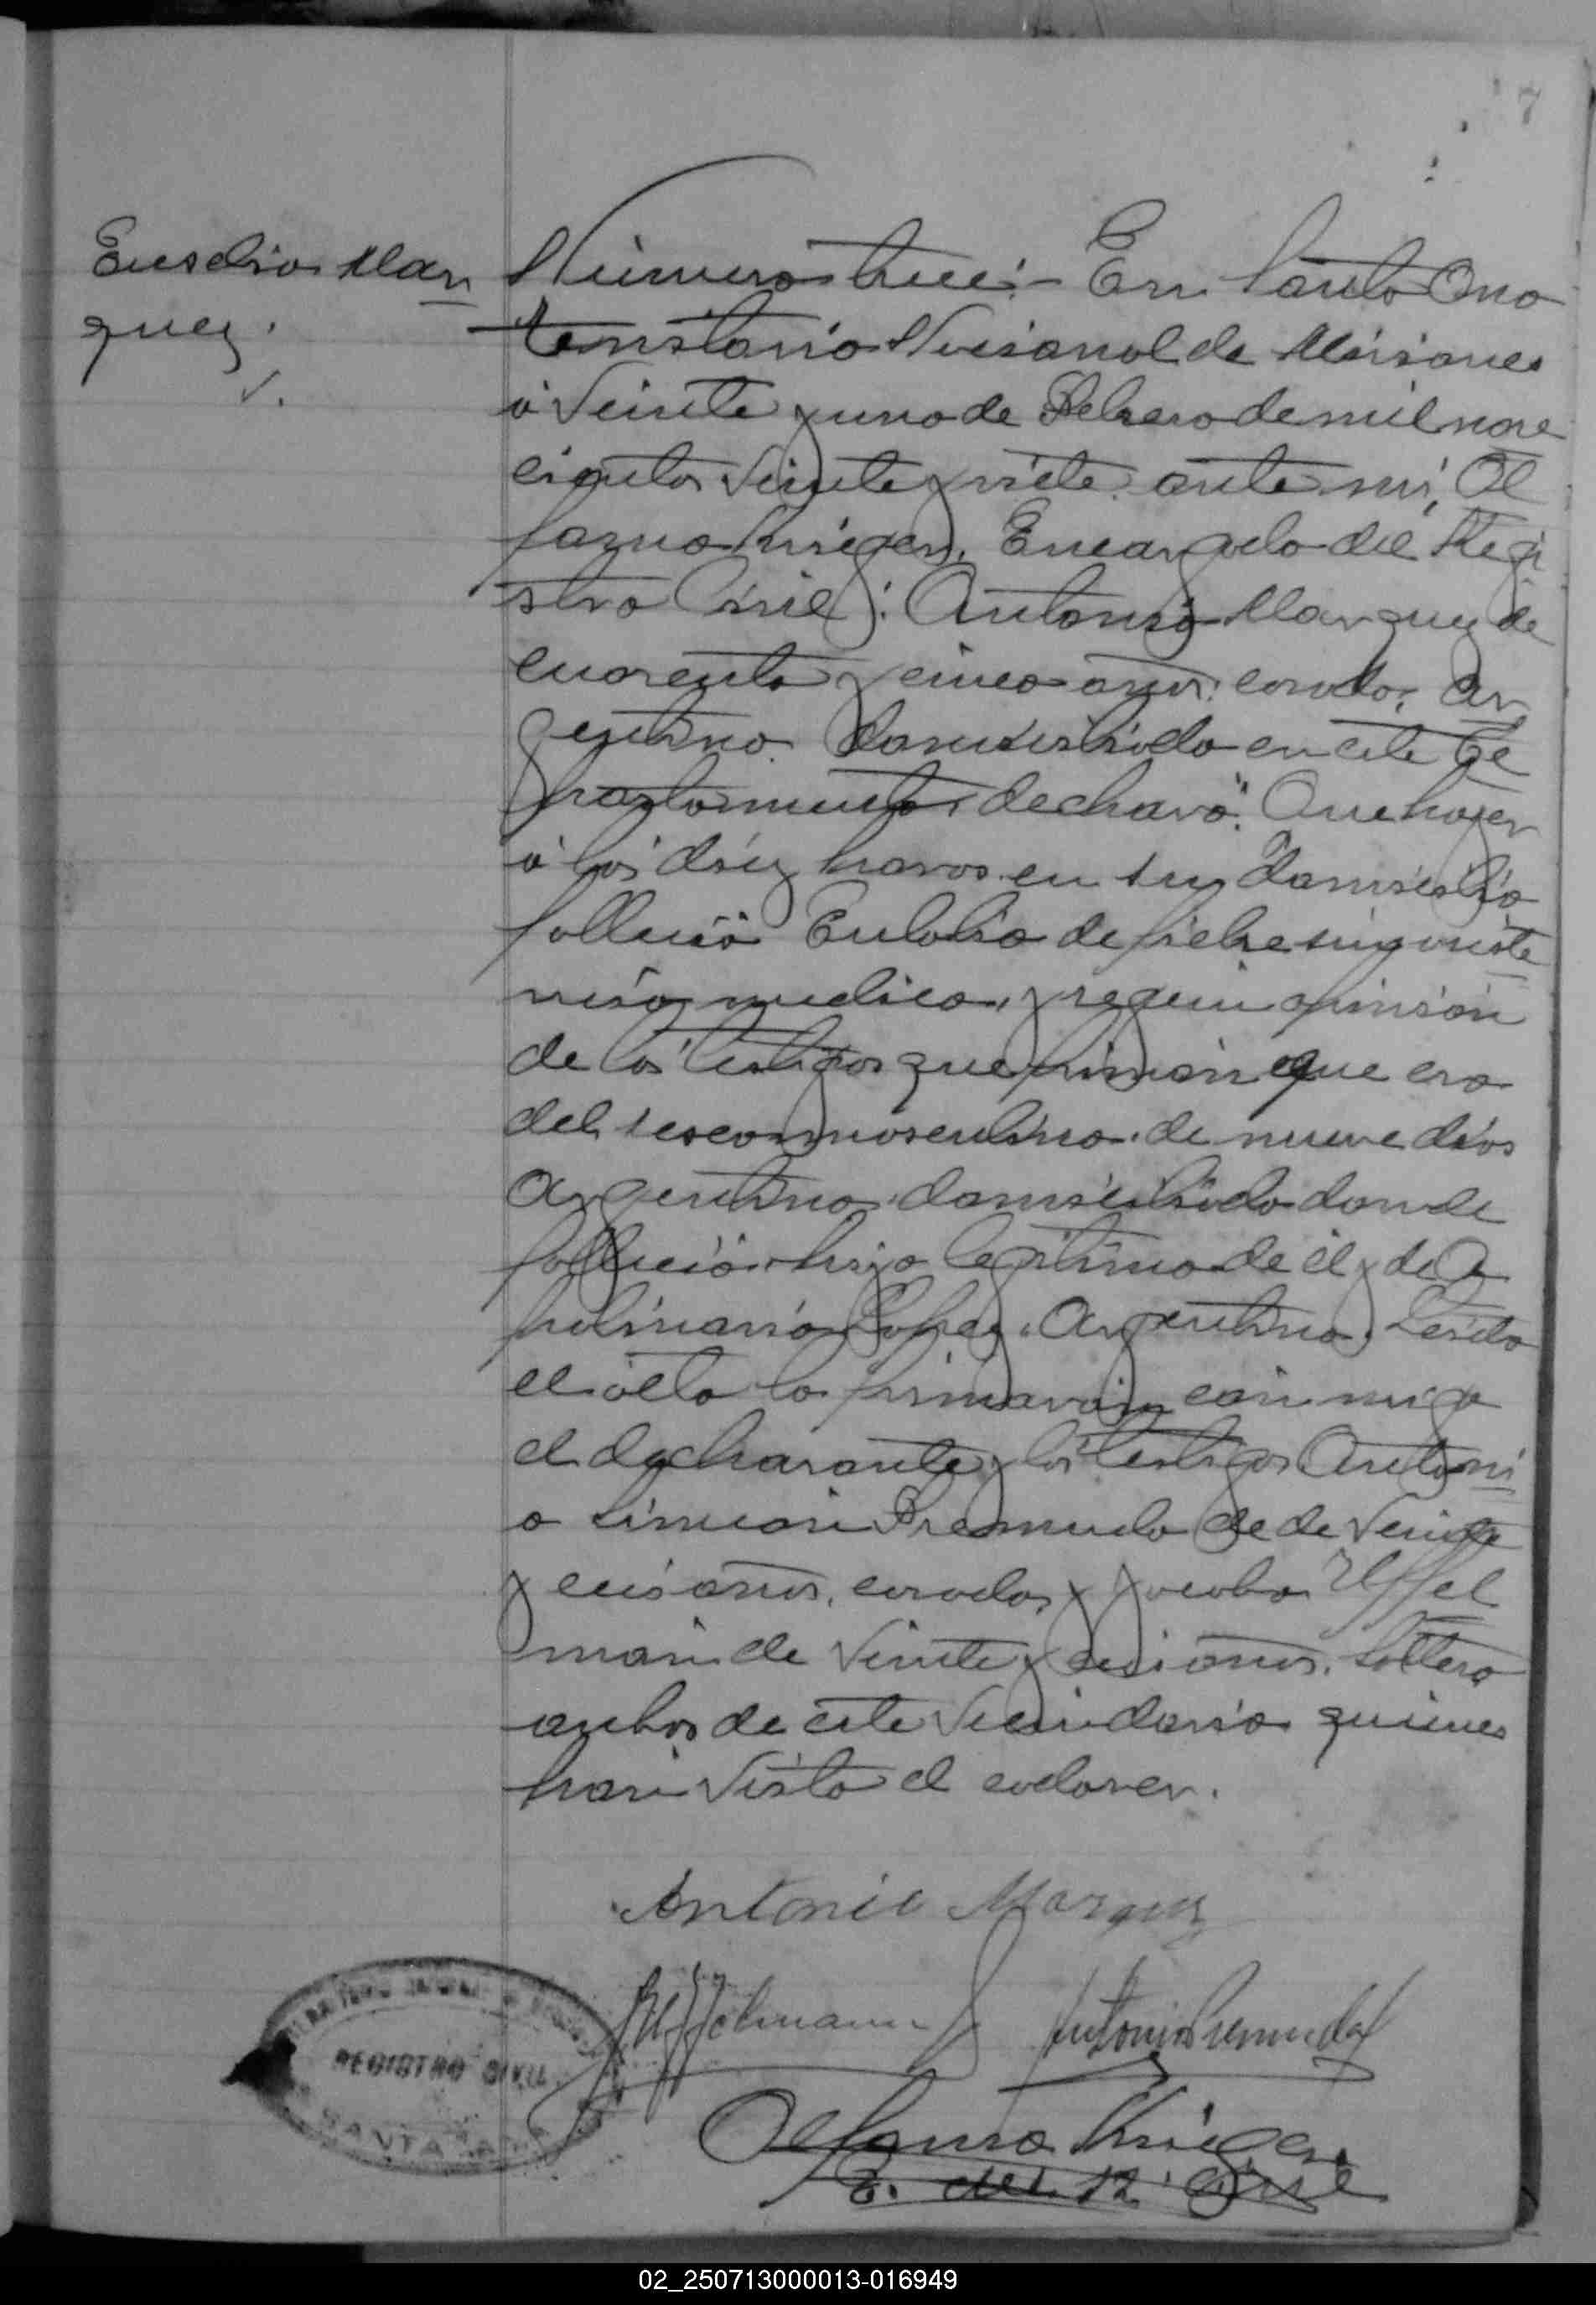 7
Eusebio Mar
quez.
Número trece:- En Santa Ana
Territorio Nacional de Misiones
á veinte y uno de Febrero de mil nove
cientos veinte y siete. ante mi, Al
fonso Krieger, Encargado del Regi
stro Civil: Antonio Marquez de
cuarenta y cinco años. casado, Ar
gentino. domiciliado en este De
partamento, declaró: Que hoy
á las diez horas en su domicilio
falleció de fiebre sin asiste
ncia medica, y segun opinion
de los testigos que firman que era
del sexo masculino. de nueve dias
Argentino, domiciliado donde
falleció. hijo legitimo de él y de A
polinaria Lopez. Argentina. Leida
el acta la firmaron con migo
el declarante y los testigos Antoni
o Simeon Premuda de de veinte
y seis años, casado, y Jacobo Uffel
man de veinte y seis años. soltero
ambos de este vecindario quienes
han visto el cadaver.
Antonio Marquez
Uffelmann
Antonio Premuda
REGISTRO CIVIL
SANTA ANA
Alfonso Krieger
E. del R. Civil
02_250713000013-016949